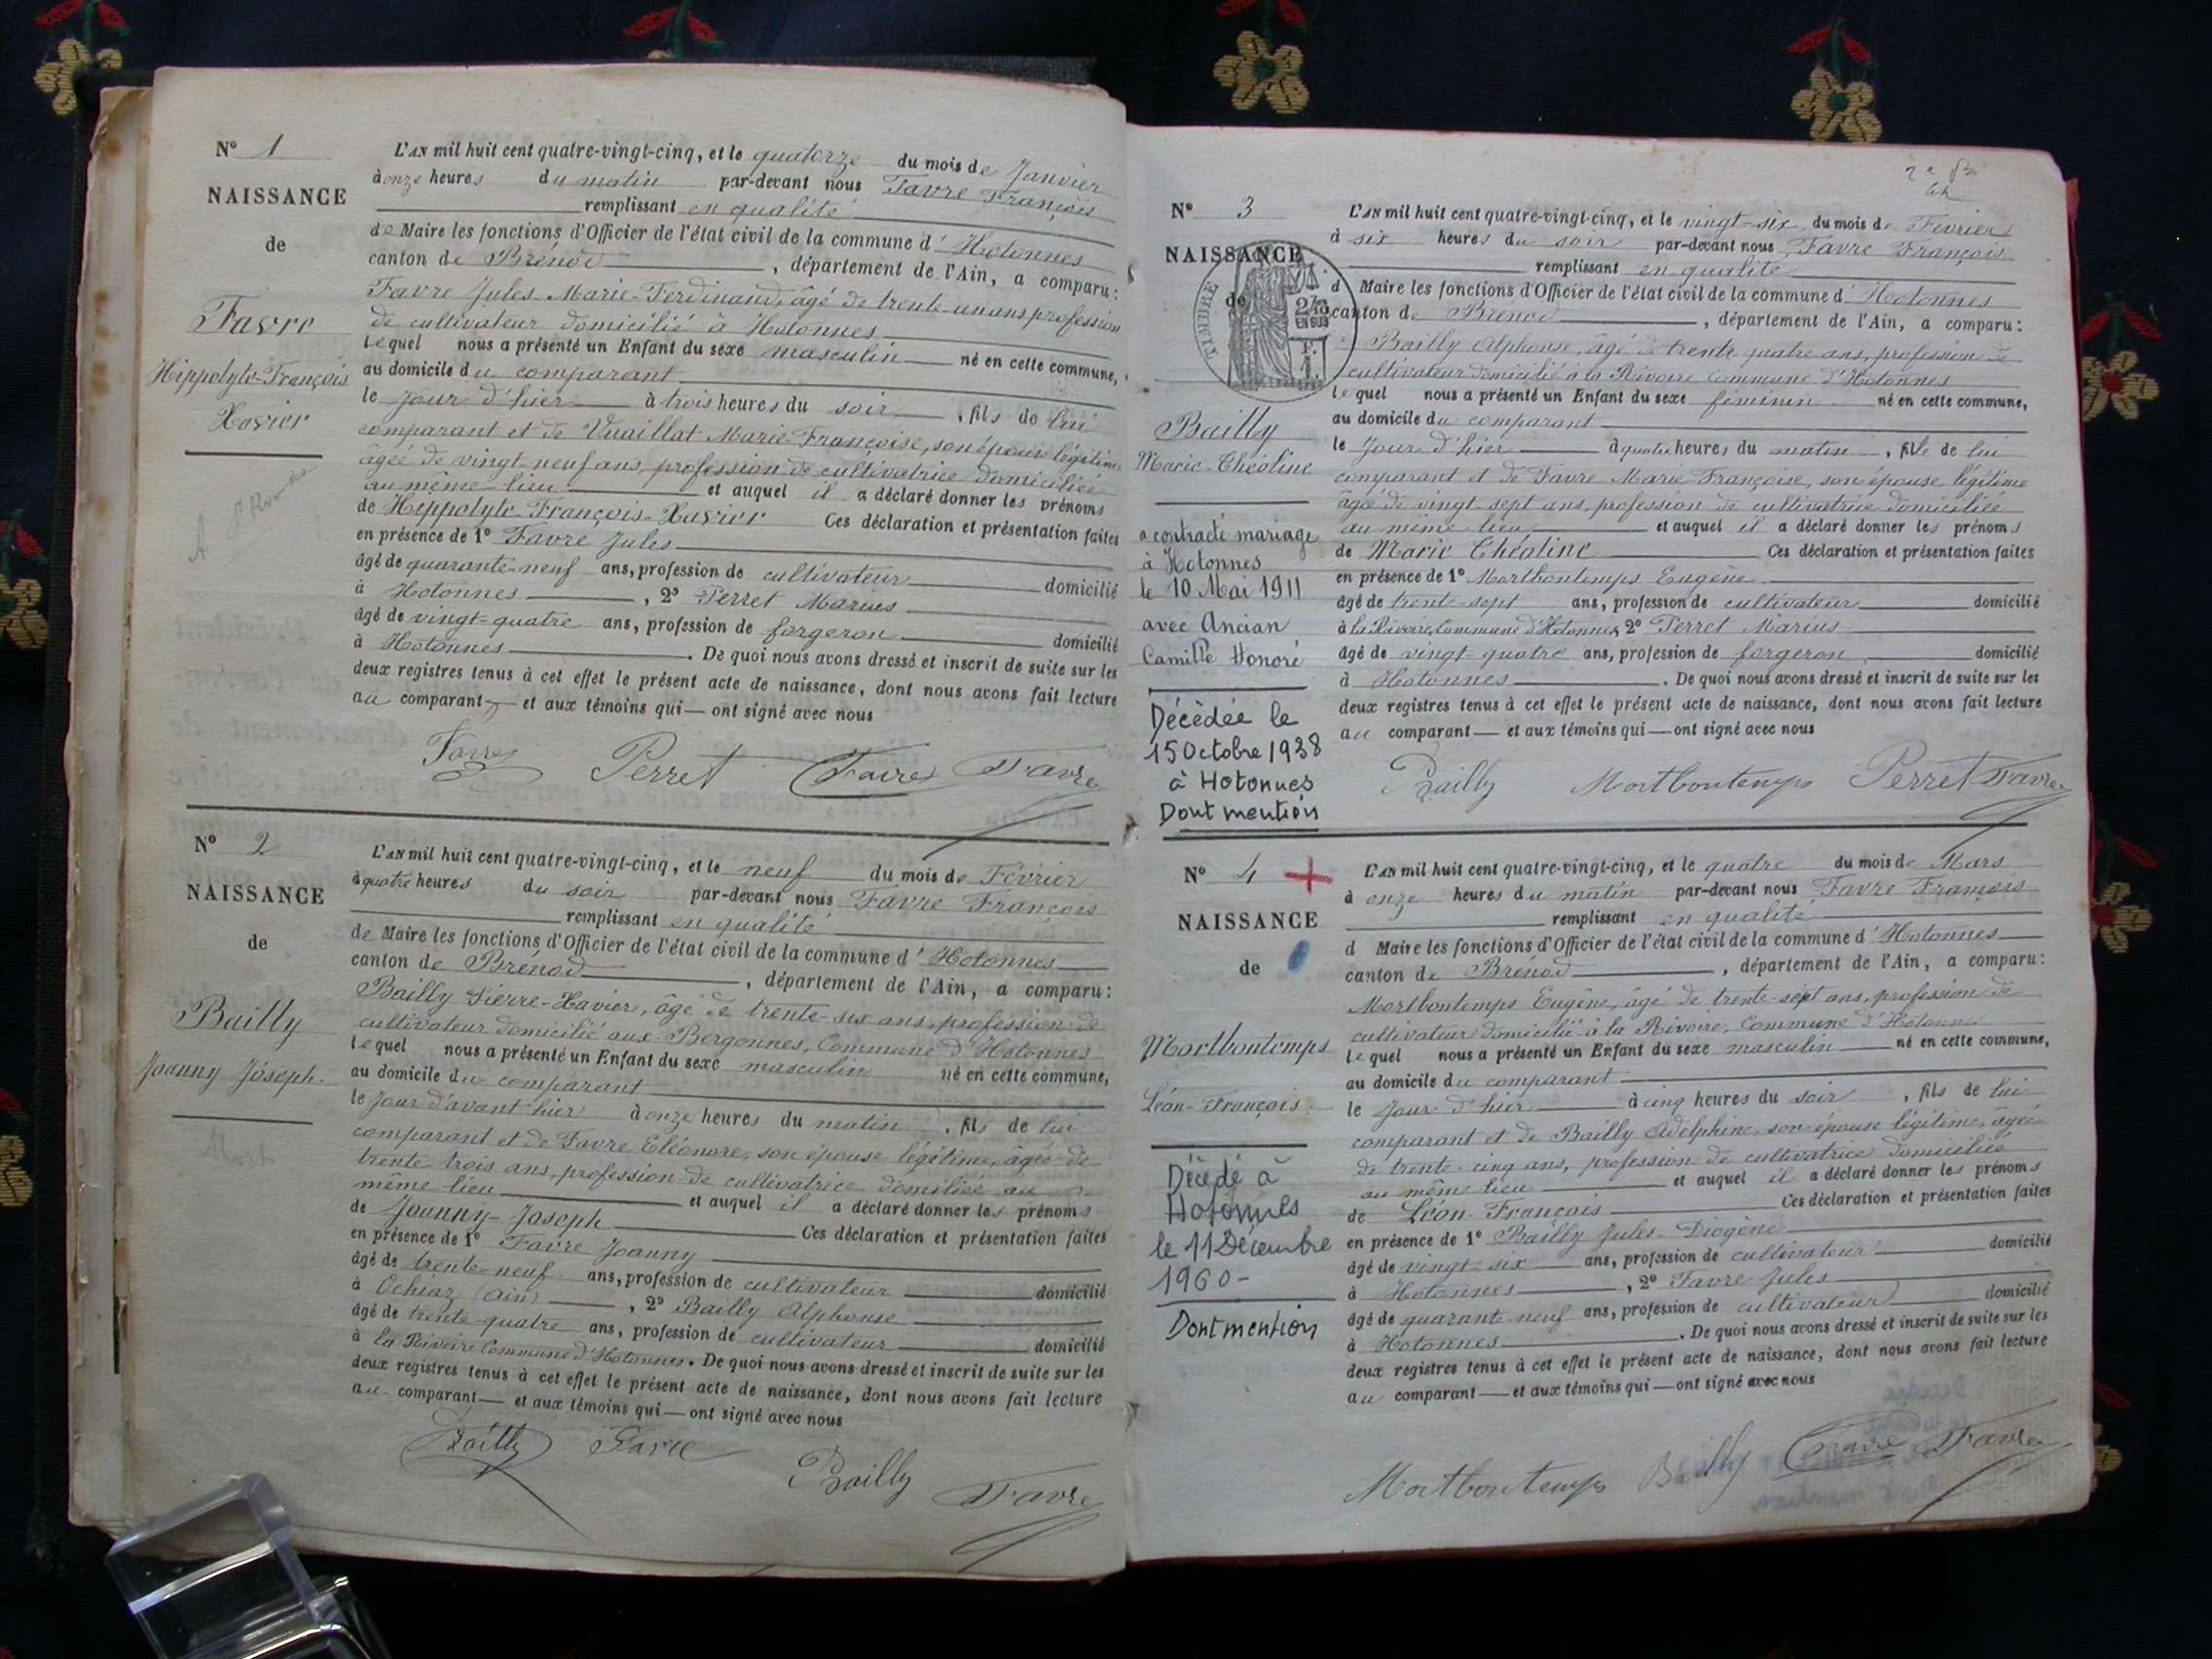 N° 1
NAISSANCE
de
Favre
Hippolyte-François
Xavier
L'AN mil huit cent quatre-vingt-cinq, et le quatorze du mois de Janvier
à onze heures du matin par-devant nous Favre François
remplissant en qualité
de Maire les fonctions d'Officier de l'état civil de la commune d'Hotonnes
canton de Brénod, département de l'Ain, a comparu:
Favre Jules-Marie-Ferdinand, âgé de trente-un ans, profession
de cultivateur domicilié à Hotonnes
lequel nous a présenté un Enfant du sexe masculin né en cette commune,
au domicile du comparant
le jour d'hier à trois heures du soir, fils de lui
comparant et de Vuaillat Marie-Françoise, son épouse légitime
âgée de vingt-neuf ans, profession de cultivatrice domiciliée
au même lieu et auquel il a déclaré donner les prénoms
de Hippolyte-François-Xavier Ces déclaration et présentation faites
en présence de 1° Favre Jules
âgé de quarante-neuf ans, profession de cultivateur domicilié
à Hotonnes, 2° Perret Marius
âgé de vingt-quatre ans, profession de forgeron domicilié
à Hotonnes. De quoi nous avons dressé et inscrit de suite sur les
deux registres tenus à cet effet le présent acte de naissance, dont nous avons fait lecture
au comparant et aux témoins qui ont signé avec nous
Favre Perret Favre Favre
N° 2
NAISSANCE
de
Bailly
Joanny Joseph.
Mort
L'AN mil huit cent quatre-vingt-cinq, et le neuf du mois de Février
à quatre heures du soir par-devant nous Favre François
remplissant en qualité
de Maire les fonctions d'Officier de l'état civil de la commune d'Hotonnes
canton de Brénod, département de l'Ain, a comparu:
Bailly Pierre-Xavier, âgé de trente-six ans, profession de
cultivateur domicilié aux Bergonnes, Commune d'Hotonnes
lequel nous a présenté un Enfant du sexe masculin né en cette commune,
au domicile du comparant
le jour d'avant hier à onze heures du matin, fils de lui
comparant et de Favre Eléonore, son épouse légitime, âgée de
trente-trois ans, profession de cultivatrice domiciliée au
même lieu et auquel il a déclaré donner les prénoms
de Joanny-Joseph Ces déclaration et présentation faites
en présence de 1° Favre Joanny
âgé de trente-neuf ans, profession de cultivateur domicilié
à Ochiaz (Ain), 2° Bailly Alphonse
âgé de trente-quatre ans, profession de cultivateur domicilié
à la Rivoire Commune d'Hotonnes. De quoi nous avons dressé et inscrit de suite sur les
deux registres tenus à cet effet le présent acte de naissance, dont nous avons fait lecture
au comparant et aux témoins qui ont signé avec nous
Bailly Favre Bailly Favre
N° 3
NAISSANCE
de
TIMBRE
2/10
EN SUS
Bailly
Marie-Théoline
a contracté mariage
à Hotonnes
le 10 Mai 1911
avec Ancian
Camille Honoré
Décédée le
15 Octobre 1938
à Hotonnes
Dont mention
L'AN mil huit cent quatre-vingt-cinq, et le vingt-six du mois de Février
à six heures du soir par-devant nous Favre François
remplissant en qualité
d Maire les fonctions d'Officier de l'état civil de la commune d'Hotonnes
canton de Brénod, département de l'Ain, a comparu:
Bailly Alphonse, âgé de trente quatre ans, profession de
cultivateur domicilié à la Rivoire Commune d'Hotonnes
lequel nous a présenté un Enfant du sexe féminin né en cette commune,
au domicile du comparant
le jour d'hier à quatre heures du matin, fille de lui
comparant et de Favre Marie Françoise, son épouse légitime
âgée de vingt-sept ans, profession de cultivatrice domiciliée
au même lieu et auquel il a déclaré donner les prénoms
de Marie Théoline Ces déclaration et présentation faites
en présence de 1° Mortbontemps Eugène
âgé de trente-sept ans, profession de cultivateur domicilié
à la Rivoire, Commune d'Hotonnes, 2° Perret Marius
âgé de vingt-quatre ans, profession de forgeron domicilié
à Hotonnes. De quoi nous avons dressé et inscrit de suite sur les
deux registres tenus à cet effet le présent acte de naissance, dont nous avons fait lecture
au comparant et aux témoins qui ont signé avec nous
Bailly Mortbontemps Perret Favre
N° 4
NAISSANCE
de
Mortbontemps
Léon-François.
Décédé à
Hotonnes
le 11 Décembre
1960-
Dont mention
L'AN mil huit cent quatre-vingt-cinq, et le quatre du mois de Mars
à onze heures du matin par-devant nous Favre François
remplissant en qualité
d Maire les fonctions d'Officier de l'état civil de la commune d'Hotonnes
canton de Brénod, département de l'Ain, a comparu:
Mortbontemps Eugène, âgé de trente-sept ans, profession de
cultivateur domicilié à la Rivoire, Commune d'Hotonnes
lequel nous a présenté un Enfant du sexe masculin né en cette commune,
au domicile du comparant
le jour d'hier à cinq heures du soir, fils de lui
comparant et de Bailly Adelphine, son épouse légitime, âgée
de trente-cinq ans, profession de cultivatrice domiciliée
au même lieu et auquel il a déclaré donner les prénoms
de Léon-François Ces déclaration et présentation faites
en présence de 1° Bailly Jules-Diogène
âgé de vingt-six ans, profession de cultivateur domicilié
à Hotonnes, 2° Favre Jules
âgé de quarante-neuf ans, profession de cultivateur domicilié
à Hotonnes. De quoi nous avons dressé et inscrit de suite sur les
deux registres tenus à cet effet le présent acte de naissance, dont nous avons fait lecture
au comparant et aux témoins qui ont signé avec nous
Mortbontemps Bailly Favre Favre